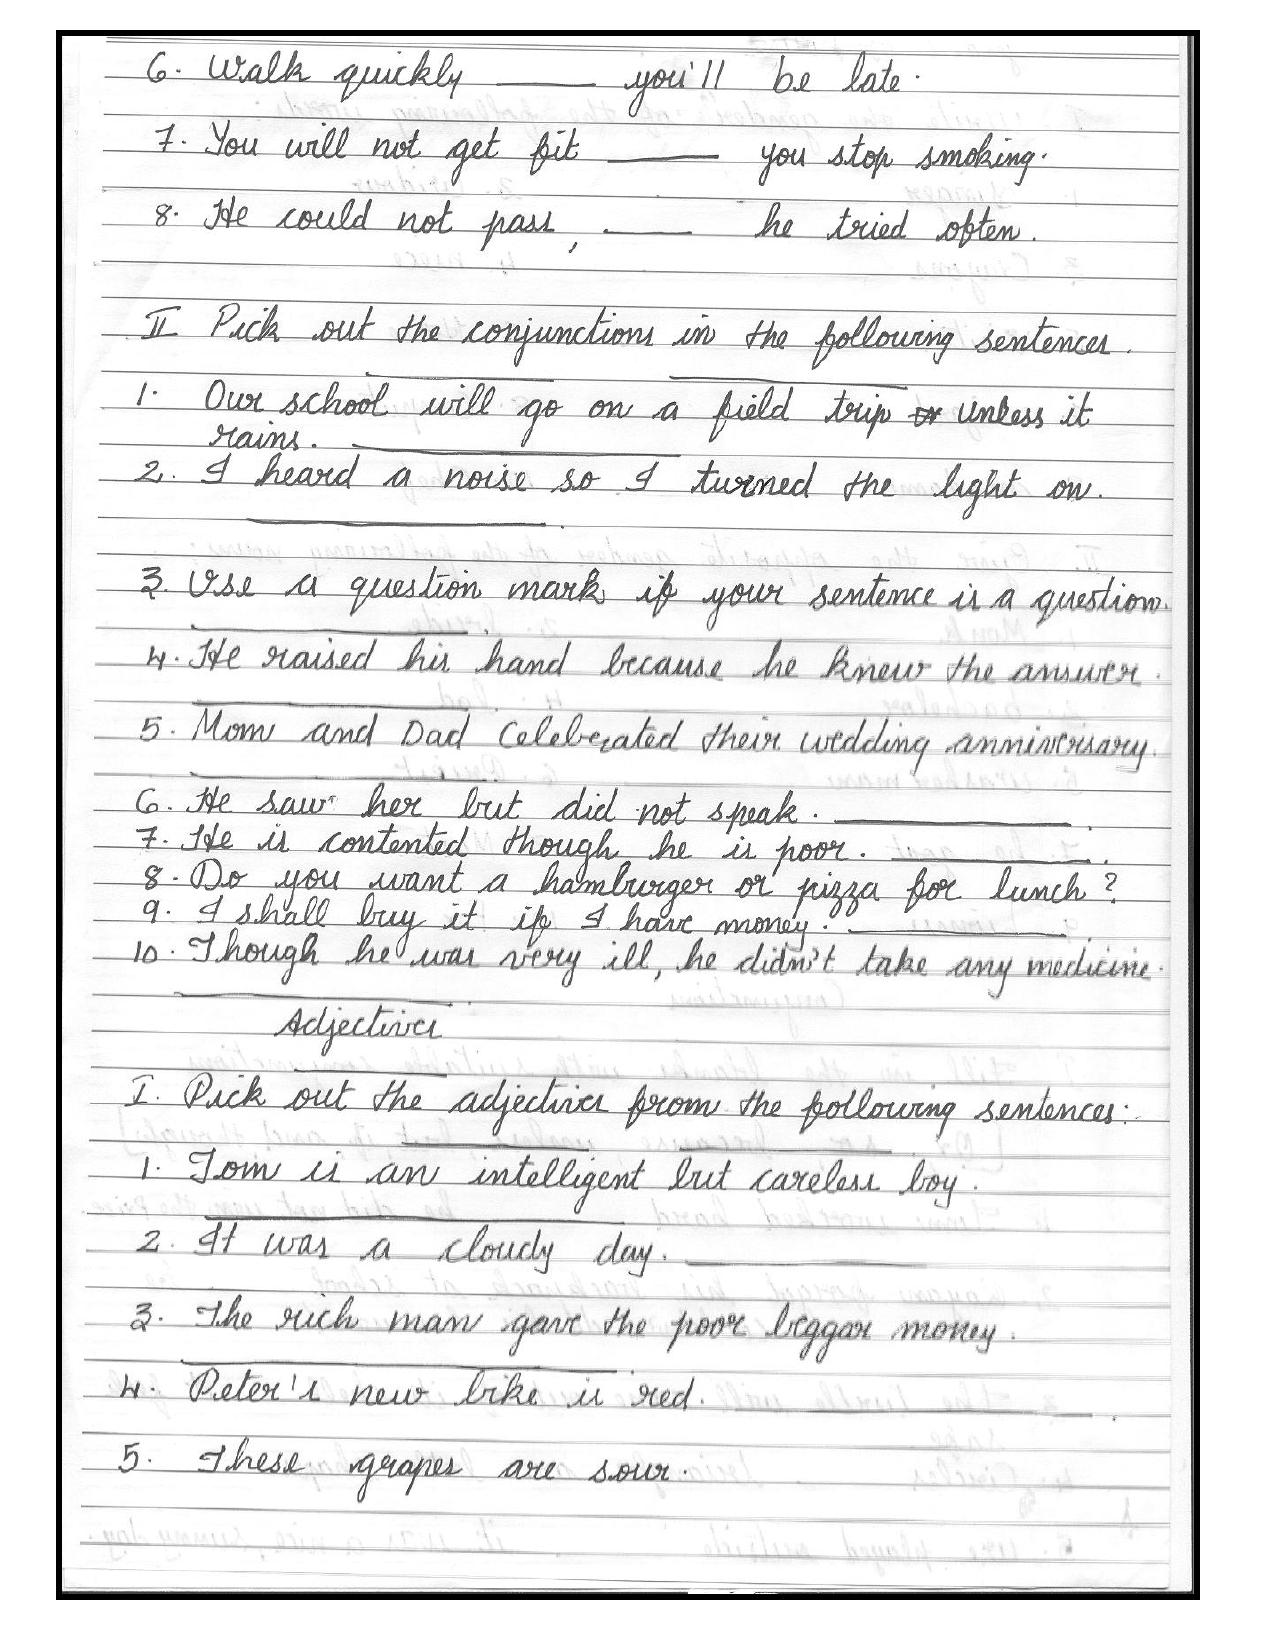 6. Walk quickly ____ you'll be late.
7. You will not get fit ____ you stop smoking.
8. He could not pass, ____ he tried often.
II Pick out the conjunctions in the following sentences.
1. Our school will go on a field trip or unless it
rains. ____
2. I heard a noise so I turned the light on.
____.
3. Use a question mark if your sentence is a question.
4. He raised his hand because he knew the answer.
5. Mom and Dad Celeberated their wedding anniversary.
6. He saw her but did not speak. ____.
7. He is contented though he is poor. ____.
8. Do you want a hamburger or pizza for lunch?
9. I shall buy it if I have money. ____.
10. Though he was very ill, he didn't take any medicine.
Adjectives
I. Pick out the adjectives from the following sentences:
1. Tom is an intelligent but careless boy.
2. It was a cloudy day. ____
3. The rich man gave the poor beggar money.
4. Peter's new bike is red. ____.
5. These grapes are sour.